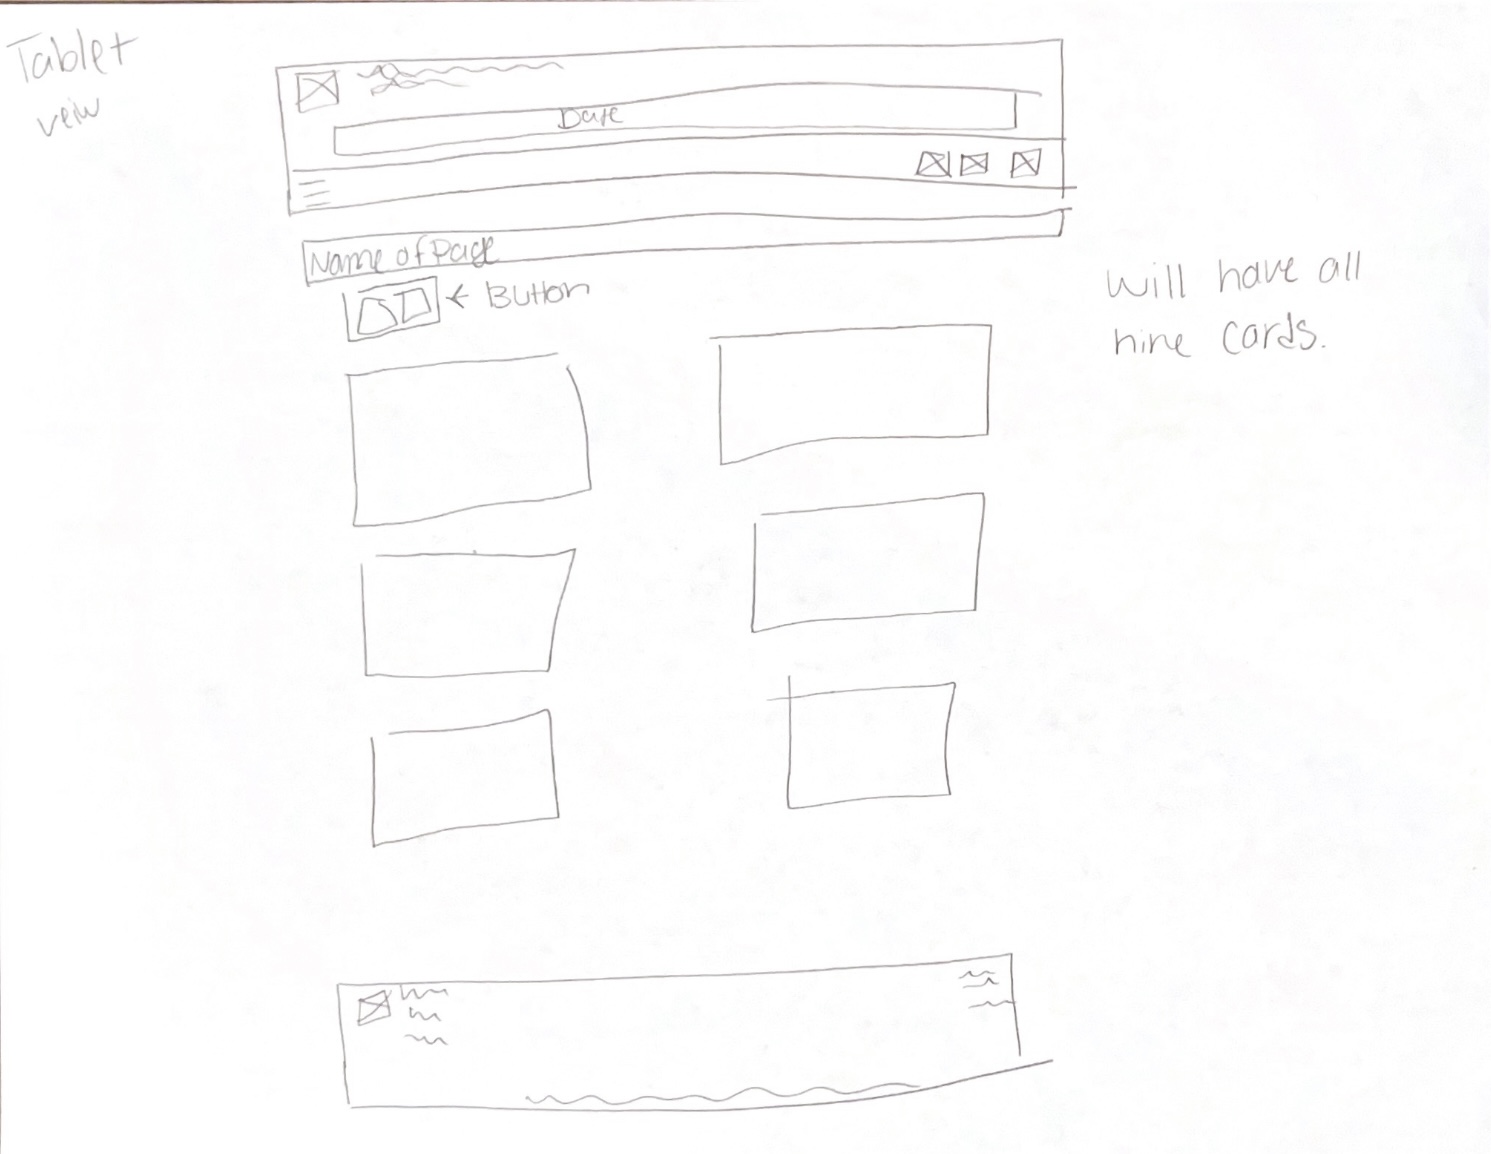 Tablet
veiw
Date
Name of Page
← Button
Will have all
nine cards.